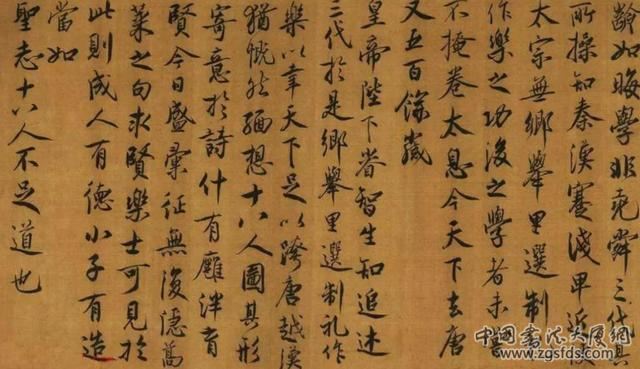 齡如晦學非堯舜三代其
所操知秦漢蹇淺卑近
太宗無鄉舉里選制
作樂之功後之學者未嘗
不掩卷太息今天下去唐
又五百餘歲
皇帝陛下睿智生知追述
三代於是鄉舉里選制礼作
樂以幸天下足以跨唐越漢
猶慨然緬想十八人圖其形
寄意於詩什有廱泮育
賢今日盛彙征無復隱蒿
萊之句求賢樂士可見於
此則成人有德小子有造
當如
聖志十八人不足道也
中国書法大展网
www.zgsfds.com